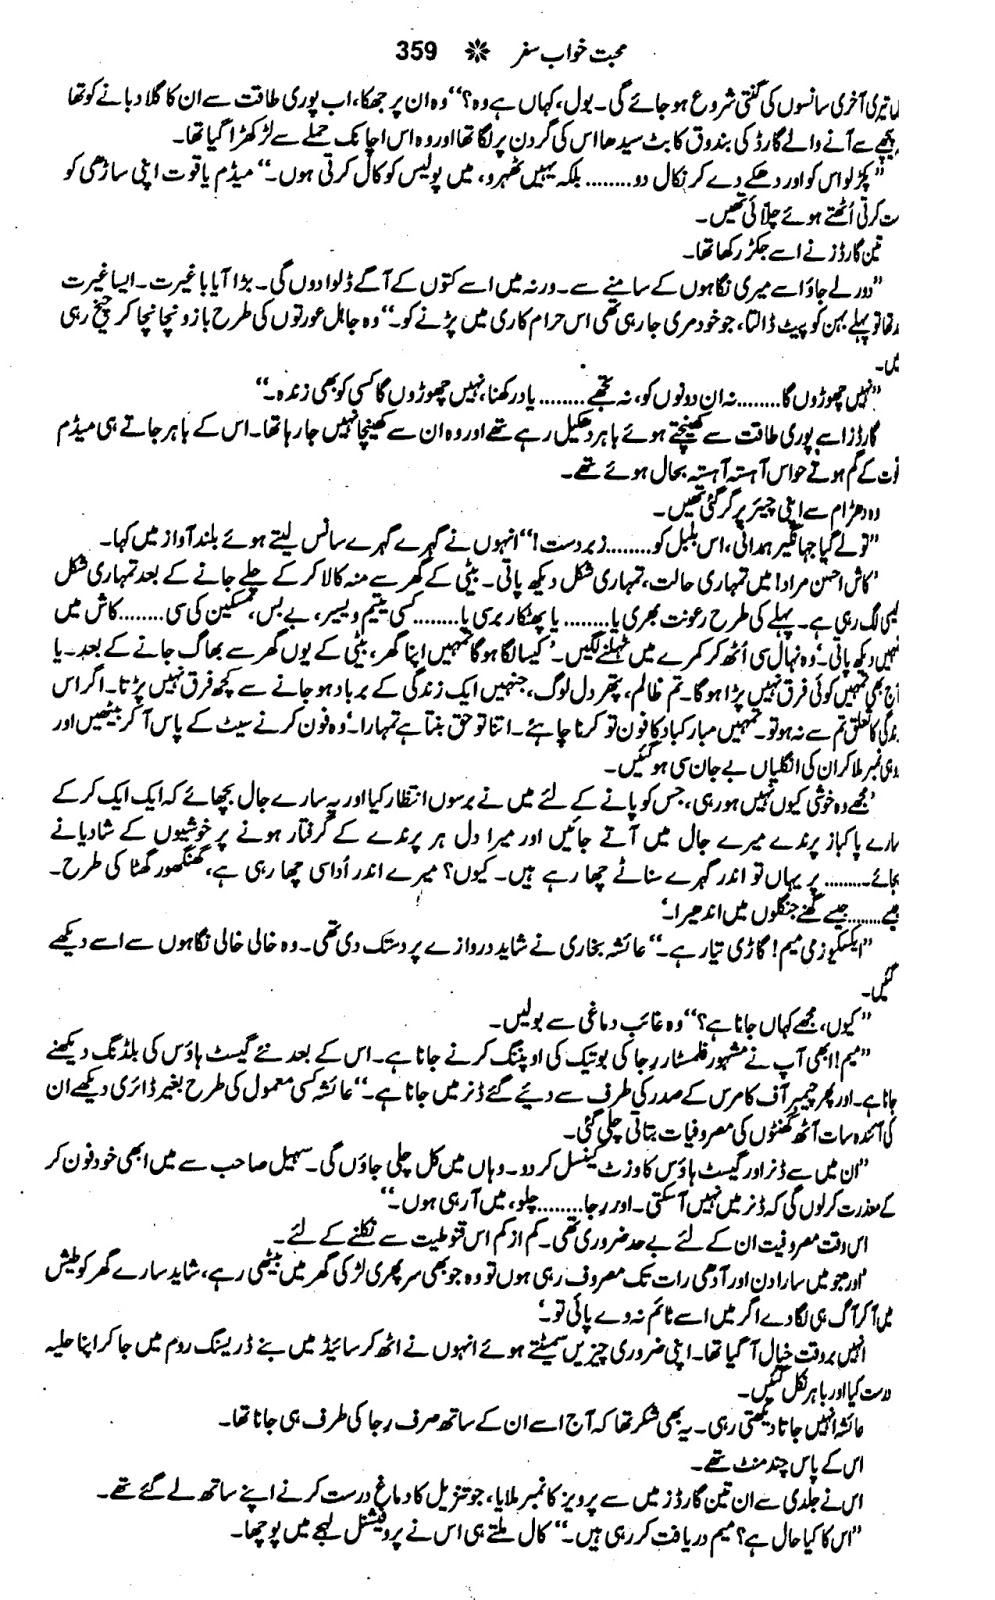 محبت خواب سفر ❋ 359
تیری آخری سانسوں کی گنتی شروع ہو جائے گی۔ بول، کہاں ہے وہ؟“ وہ ان پر جھکا، اب پوری طاقت سے ان کا گلا دبانے کو تھا
سے آنے والے گارڈ کی بندوق کا بٹ سیدھا اس کی گردن پر لگا تھا اور وہ اس اچانک حملے سے لڑکھڑا گیا تھا۔
”پکڑ لو اس کو اور دھکے دے کر نکال دو........ بلکہ یہیں ٹھہرو، میں پولیس کو کال کرتی ہوں۔“ میڈم یاقوت اپنی ساڑھی کو
کرتی اُٹھتے ہوئے چلّائی تھیں۔
تین گارڈز نے اسے جکڑ رکھا تھا۔
”دور لے جاؤ اسے میری نگاہوں کے سامنے سے۔ ورنہ میں اسے کتوں کے آگے ڈلوا دوں گی۔ بڑا آیا باغیرت۔ ایسا غیرت
تو پہلے بہن کو پیٹ ڈالتا، جو خود مری جا رہی تھی اس حرام کاری میں پڑنے کو۔“ وہ جاہل عورتوں کی طرح بازو نچا نچا کر چیخ رہی
”نہیں چھوڑوں گا........ نہ ان دونوں کو، نہ تجھے........ یاد رکھنا، نہیں چھوڑوں گا کسی کو بھی زندہ۔“
گارڈز اسے پوری طاقت سے کھینچتے ہوئے باہر دھکیل رہے تھے اور وہ ان سے کھینچا نہیں جا رہا تھا۔ اس کے باہر جاتے ہی میڈم
کے گم ہوتے حواس آہستہ آہستہ بحال ہوئے تھے۔
وہ دھڑام سے اپنی چیئر پر گر گئی تھیں۔
”تو لے گیا جہانگیر ہمدانی، اس بلبل کو........ زبردست!“ انہوں نے گہرے گہرے سانس لیتے ہوئے بلند آواز میں کہا۔
’کاش احسن مراد! میں تمہاری حالت، تمہاری شکل دیکھ پاتی۔ بیٹی کے گھر سے منہ کالا کر کے چلے جانے کے بعد تمہاری شکل
لگ رہی ہے۔ پہلے کی طرح رعونت بھری یا........ یا پھٹکار برسی یا........ کسی یتیم و یسیر، بے بس، مسکین کی سی........ کاش میں
دیکھ پاتی۔‘ وہ نہال سی اُٹھ کر کمرے میں ٹہلنے لگیں۔ ’کیسا لگا ہو گا تمہیں اپنا گھر، بیٹی کے یوں گھر سے بھاگ جانے کے بعد۔ یا
بھی تمہیں کوئی فرق نہیں پڑا ہو گا۔ تم ظالم، پتھر دل لوگ، جنہیں ایک زندگی کے برباد ہو جانے سے کچھ فرق نہیں پڑتا۔ اگر اس
کا تعلق تم سے نہ ہو تو۔ تمہیں مبارکباد کا فون تو کرنا چاہئے۔ اتنا تو حق بنتا ہے تمہارا۔‘ وہ فون کرنے سیٹ کے پاس آ کر بیٹھیں اور
نمبر ملا کر ان کی انگلیاں بے جان سی ہو گئیں۔
’مجھے وہ خوشی کیوں نہیں ہو رہی، جس کو پانے کے لئے میں نے برسوں انتظار کیا اور یہ سارے جال بچھائے کہ ایک ایک کر کے
پاکباز پرندے میرے جال میں آتے جائیں اور میرا دل ہر پرندے کے گرفتار ہونے پر خوشیوں کے شادیانے
بجائے........ پر یہاں تو اندر گہرے سناٹے چھا رہے ہیں۔ کیوں؟ میرے اندر اُداسی چھا رہی ہے، گھنگھور گھٹا کی طرح۔
جیسے........ جیسے گھنے جنگلوں میں اندھیرا۔‘
”ایکسکیوز می میم! گاڑی تیار ہے۔“ عائشہ بخاری نے شاید دروازے پر دستک دی تھی۔ وہ خالی خالی نگاہوں سے اسے دیکھے
گئیں۔
”کیوں، مجھے کہاں جانا ہے؟“ وہ غائب دماغی سے بولیں۔
”میم! ابھی آپ نے مشہور فلمسٹار رجا کی بوتیک کی اوپننگ کرنے جانا ہے۔ اس کے بعد نئے گیسٹ ہاؤس کی بلڈنگ دیکھنے
جانا ہے۔ اور پھر چیمبر آف کامرس کے صدر کی طرف سے دیئے گئے ڈنر میں جانا ہے۔“ عائشہ کسی معمول کی طرح بغیر ڈائری دیکھے ان
کی آئندہ سات آٹھ گھنٹوں کی مصروفیات بتاتی چلی گئی۔
”ان میں سے ڈنر اور گیسٹ ہاؤس کا وزٹ کینسل کر دو۔ وہاں میں کل چلی جاؤں گی۔ سہیل صاحب سے میں ابھی خود فون کر
کے معذرت کر لوں گی کہ ڈنر میں نہیں آ سکتی۔ اور رجا........ چلو، میں آ رہی ہوں۔“
اس وقت مصروفیت ان کے لئے بے حد ضروری تھی۔ کم از کم اس قنوطیت سے نکلنے کے لئے۔
’اور جو میں سارا دن اور آدھی رات تک مصروف رہی ہوں تو وہ جو بھی سرپھری لڑکی گھر میں بیٹھی رہے، شاید سارے گھر کو طیش
میں آ کر آگ ہی لگا دے اگر میں اسے ٹائم نہ دے پائی تو۔‘
انہیں بروقت خیال آ گیا تھا۔ اپنی ضروری چیزیں سمیٹتے ہوئے انہوں نے اٹھ کر سائیڈ میں بنے ڈریسنگ روم میں جا کر اپنا حلیہ
درست کیا اور باہر نکل گئیں۔
عائشہ انہیں جاتا دیکھتی رہی۔ یہ بھی شکر تھا کہ آج اسے ان کے ساتھ صرف رجا کی طرف ہی جانا تھا۔
اس کے پاس چند منٹ تھے۔
اس نے جلدی سے ان تین گارڈز میں سے پرویز کا نمبر ملایا، جو تنزیل کا دماغ درست کرنے اپنے ساتھ لے گئے تھے۔
”اس کا کیا حال ہے؟ میم دریافت کر رہی ہیں۔“ کال ملتے ہی اس نے پروفیشنل لہجے میں پوچھا۔